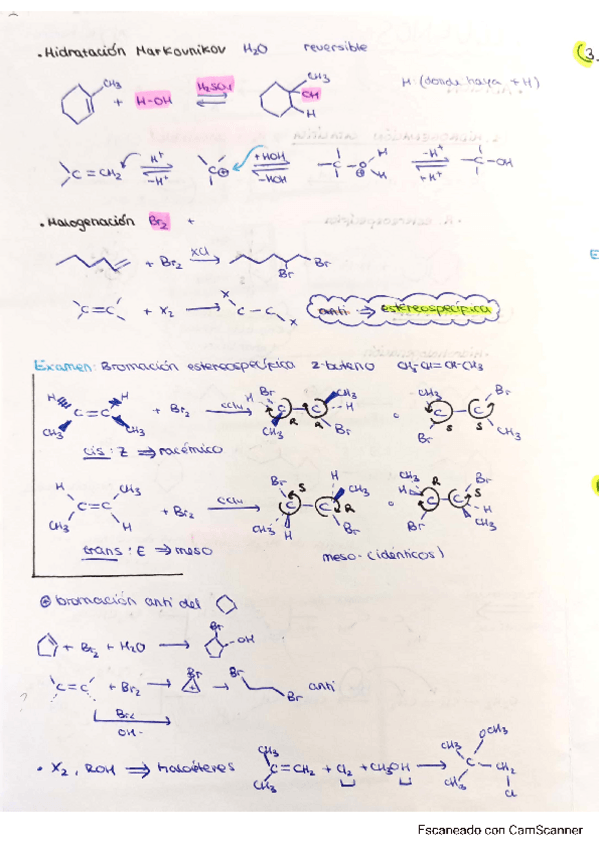 • Hidratación Markovnikov H₂O reversible (3.
CH₃ + H-OH H₂SO₄ CH₃ OH H H (donde haya + H)
C=CH₂ H⁺ -H⁺ C⊕ +HOH -HOH -C-O⊕ H H -H⁺ +H⁺ -C-OH
• Halogenación Br₂ +
+ Br₂ Br Br
C=C + X₂ → X C-C X anti ⇒ estereospecífica
Examen: Bromación estereospecífica 2-buteno CH₃-CH=CH-CH₃
H H C=C CH₃ CH₃ + Br₂ CCl₄ Br H CH₃ C-C CH₃ H Br R R o CH₃ Br C-C Br CH₃ S S
cis: Z ⇒ racémico
H CH₃ C=C CH₃ H + Br₂ CCl₄ Br S C-C H CH₃ CH₃ H R Br o CH₃ H R Br C-C S Br H CH₃
trans: E ⇒ meso meso- (idénticos)
⊕ bromación anti del
+ Br₂ + H₂O → Br OH
? C=C + Br₂ → Br + → Br Br anti
Br₂
OH-
• X₂, ROH ⇒ haloéteres CH₃ CH₃ C=CH₂ + Cl₂ + CH₃OH → CH₃ CH₃ C OCH₃ CH₂ Cl
Escaneado con CamScanner